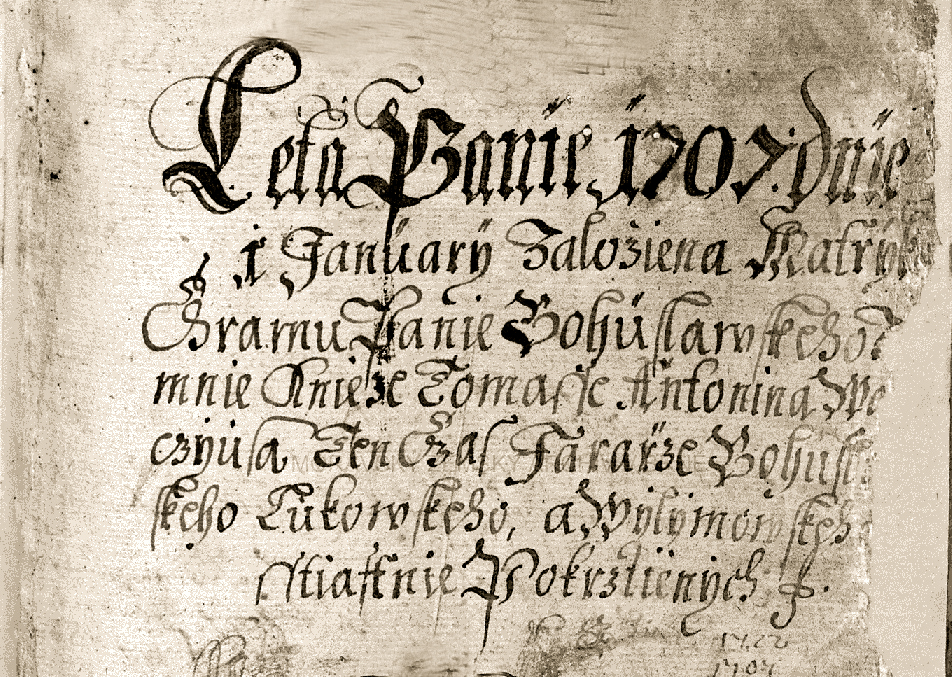 Leta Panie 1707 dnie
1 January Založiena Matryk
Chramu Panie Bohuslawskeho
mnie Knieze Tomasse Antonina We
czyusa Ten Czas Fararze Bohusl
skeho Lukowskeho, a Wylymowskeh
sstiastnie Pokrztienych
1707